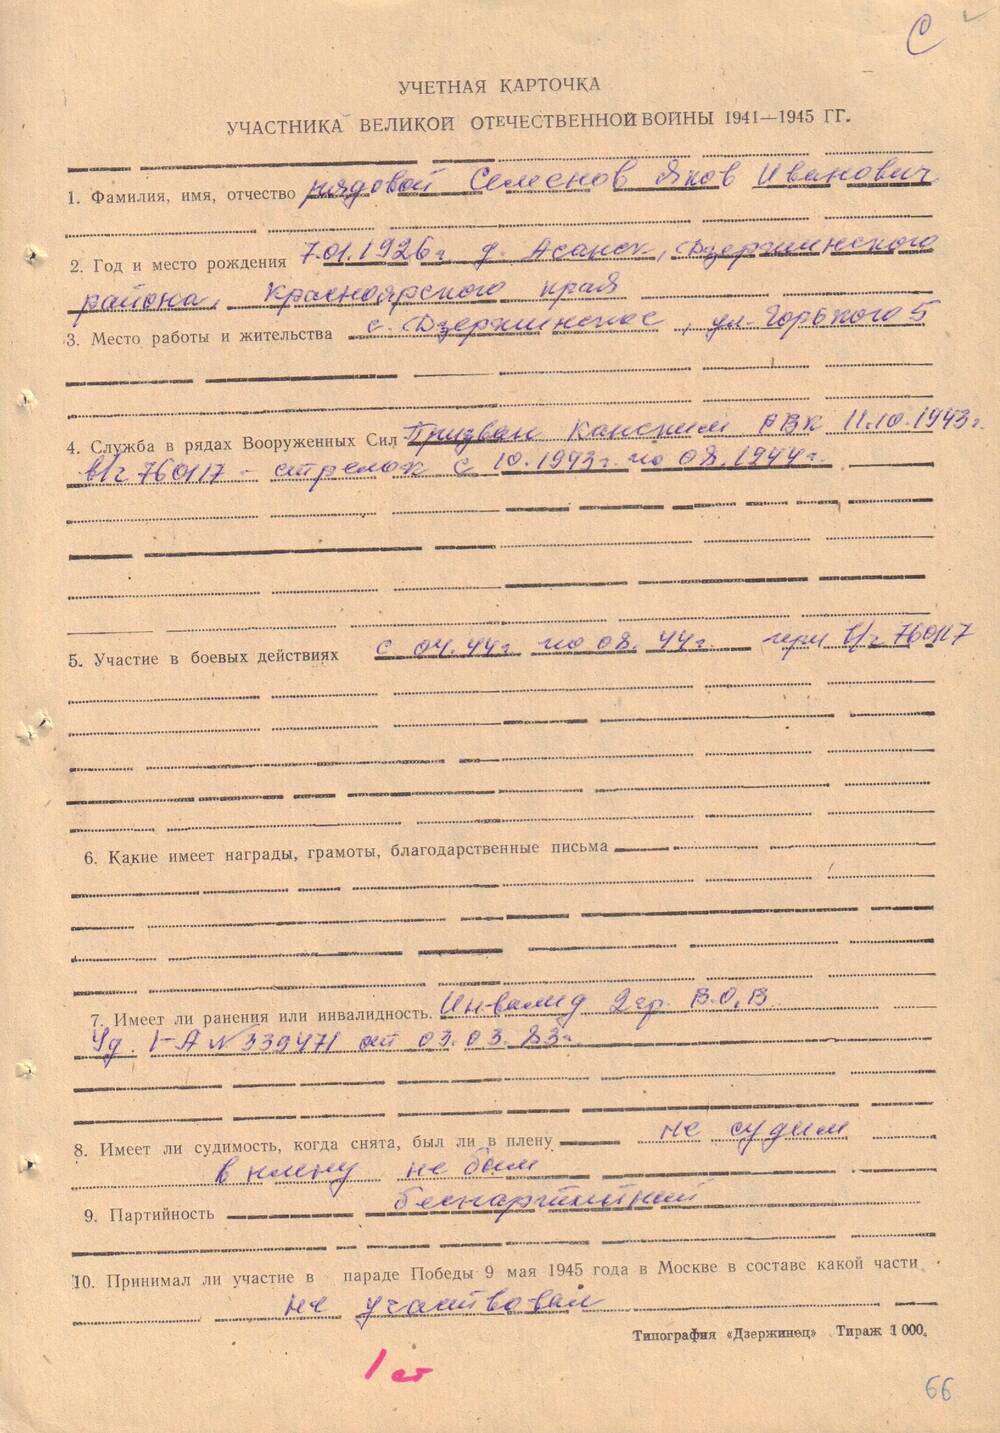 С
УЧЕТНАЯ КАРТОЧКА
УЧАСТНИКА ВЕЛИКОЙ ОТЕЧЕСТВЕННОЙ ВОЙНЫ 1941—1945 ГГ.
1. Фамилия, имя, отчество рядовой Семенов Яков Иванович
2. Год и место рождения 7.01.1926г д. Асанск, Дзержинского
района, Красноярского края
3. Место работы и жительства с. Дзержинское, ул. Горького 5
4. Служба в рядах Вооруженных Сил Призван Канским РВК 11.10.1943г.
в/ч 760117 - стрелок с 10.1943г. по 08.1944г.
5. Участие в боевых действиях с 04.44г. по 08.44г. при в/ч 760117
6. Какие имеет награды, грамоты, благодарственные письма
7. Имеет ли ранения или инвалидность. Инвалид 2 гр. В.О.В
Уд. 1-А № 339471 от 03.03.83г.
8. Имеет ли судимость, когда снята, был ли в плену не судим
в плену не был
9. Партийность беспартийный
10. Принимал ли участие в параде Победы 9 мая 1945 года в Москве в составе какой части
не участвовал
Типография «Дзержинец» Тираж 1 000.
1 ст
66